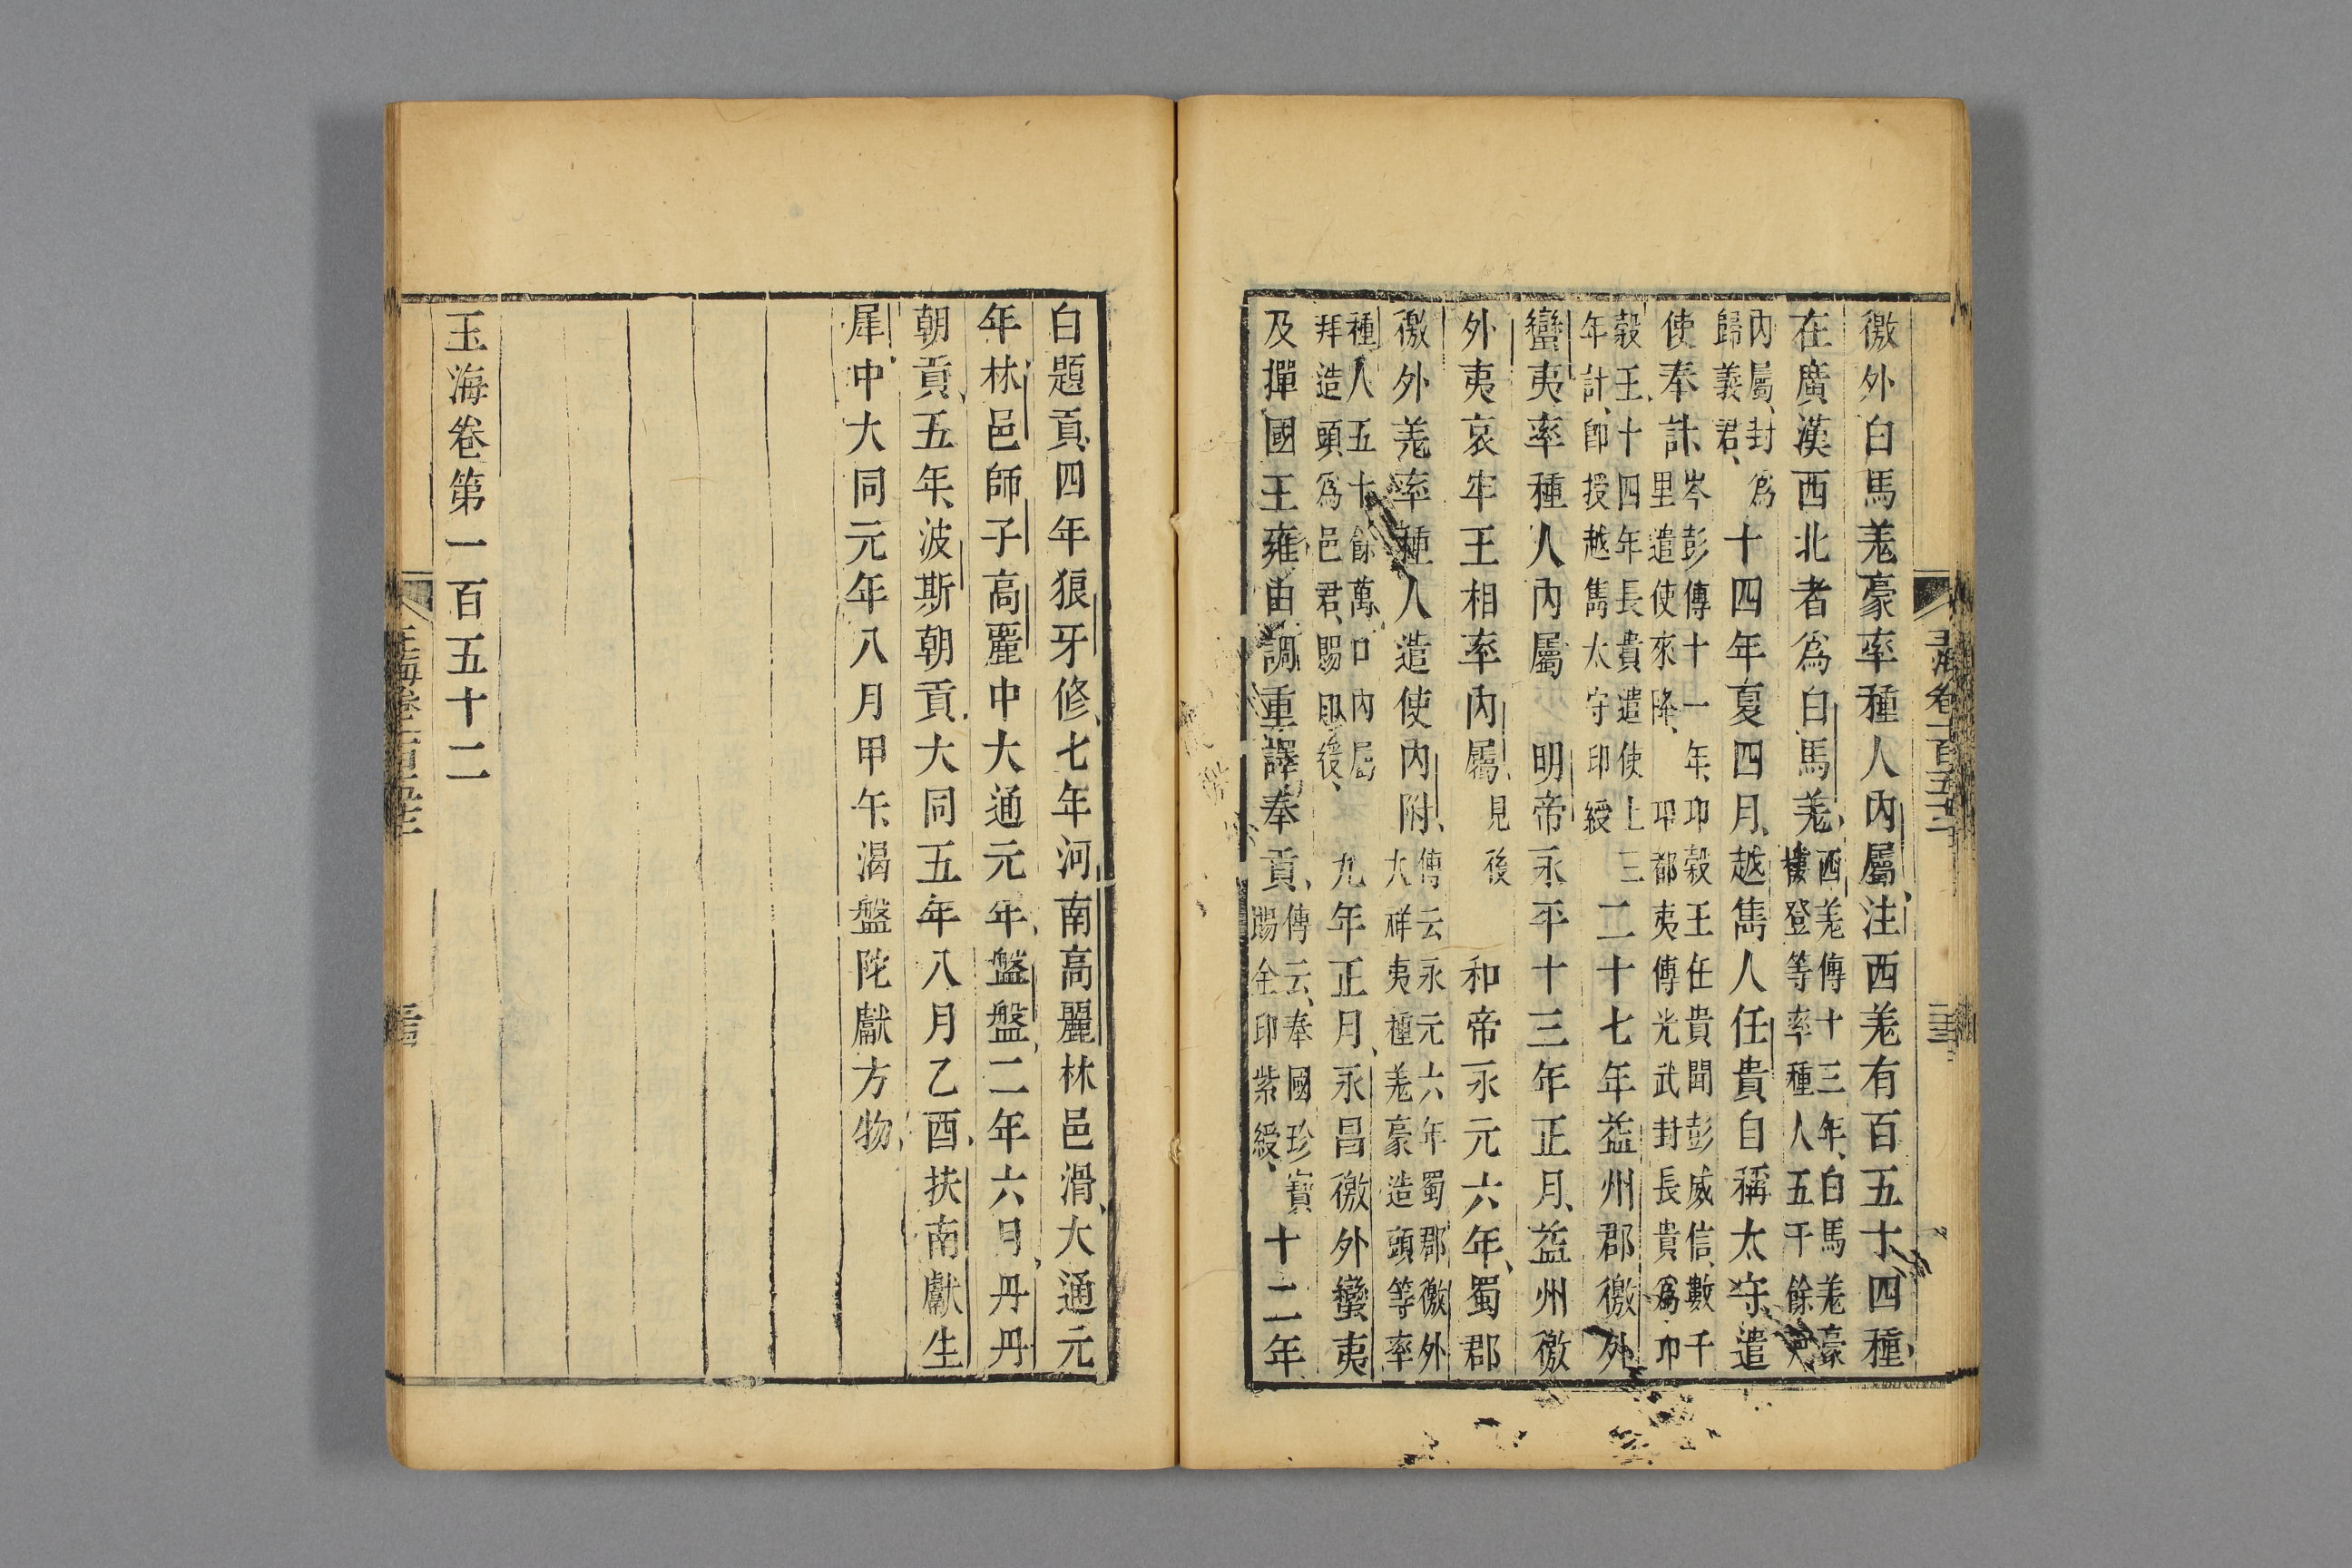 徼外白馬羌豪率種人内屬注西羌有百五十四種
在廣漢西北者爲白馬羌
西羌傳十三年白馬羌豪
樓登等率種人五千餘戶
内屬封爲
歸義君
十四年夏四月越雟人任貴自稱太守遣
使奉計
岑彭傳十一年卭穀王任貴聞彭威信數千
里遣使來降卭都夷傳光武封長貴爲卭
穀王十四年長貴遣使上三
年計即授越雟太守印綬
二十七年益州郡徼外
蠻夷率種人内屬 明帝永平十三年正月益州徼
外夷哀牢王相率内屬
見後
和帝永元六年蜀郡
徼外羌率種人造使内附
傳云永元六年蜀郡徼外
大祥夷種羌豪造頭等率
種人五十餘萬口内屬
拜造頭爲邑君賜印綬
九年正月永昌徼外蠻夷
及撣國王雍由調重譯奉貢
傳云奉國珍寶
賜金印紫綬
十二年
白題貢四年狼牙修七年河南高麗林邑滑大通元
年林邑師子高麗中大通元年盤盤二年六月丹丹
朝貢五年波斯朝貢大同五年八月乙酉扶南獻生
犀中大同元年八月甲午渴盤陀獻方物
玉海卷第一百五十二